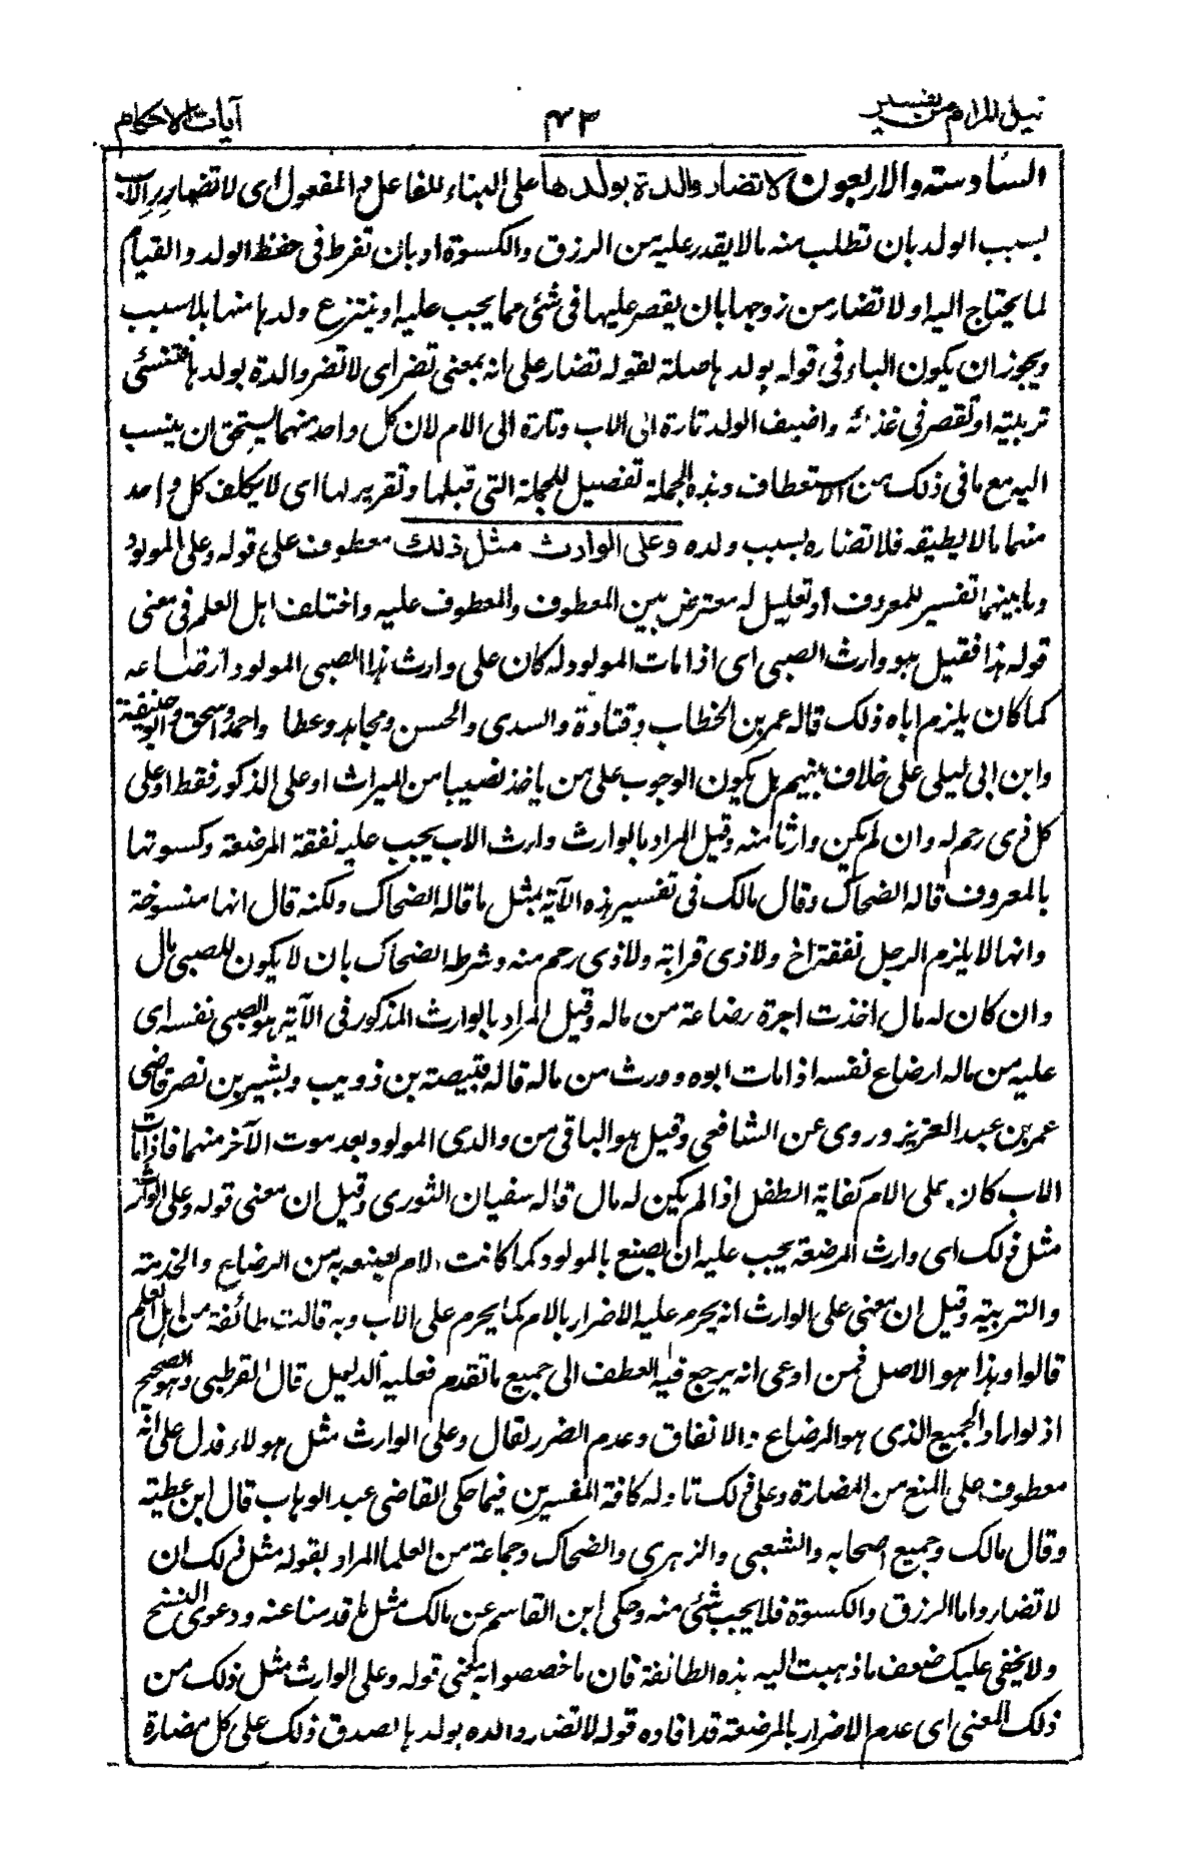 نيل المرام من تفسير ٤٣ آيات الاحكام
السادسة والاربعون لا تضار والدة بولدها على البناء للفاعل او المفعول اى لا تضار الاب
بسبب الولد بان تطلب منه مالا يقدر عليه من الرزق والكسوة او بان تفرط فى حفظ الولد والقيام
لما يحتاج اليه او لا تضار من زوجها بان يقصر عليها فى شئ مما يجب عليه او ينتزع ولدها منها بلا سبب
ويجوز ان يكون الباء فى قوله بولدها صلة لقوله تضار على انه بمعنى تضر اى لا تضر والدة بولدها فتسئ
تربيته او تقصر فى غذائه واضيف الولد تارة الى الاب وتارة الى الام لان كل واحد منهما يستحق ان ينسب
اليه مع ما فى ذلك من الاستعطاف وهذه الجملة تفصيل للجملة التى قبلها وتقرير لها اى لا يكلف كل واحد
منهما مالا يطيقه فلا تضاره بسبب ولده وعلى الوارث مثل ذلك معطوف على قوله وعلى المولود
وما بينهما تفسير للمعروف او تعليل له معترض بين المعطوف والمعطوف عليه واختلف اهل العلم فى معنى
قوله هذا فقيل هو وارث الصبى اى اذا مات المولود له كان على وارث هذا الصبى المولود ارضاعه
كما كان يلزم اباه ذلك قاله عمر بن الخطاب وقتادة والسدى والحسن ومجاهد وعطا واحمد واسحق وابو حنيفة
وابن ابى ليلى على خلاف بينهم هل يكون الوجوب على من ياخذ نصيبا من الميراث او على الذكور فقط او على
كل ذى رحم له وان لم يكن وارثا منه وقيل المراد بالوارث وارث الاب يجب عليه نفقة المرضعة وكسوتها
بالمعروف قاله الضحاك وقال مالك فى تفسير هذه الآية بمثل ما قاله الضحاك ولكنه قال انها منسوخة
وانها لا يلزم الرجل نفقة اخ ولا ذى قرابة ولا ذى رحم منه وشرط الضحاك بان لا يكون للصبى مال
وان كان له مال اخذت اجرة رضاعة من ماله وقيل المراد بالوارث المذكور فى الآية هو الصبى نفسه اى
عليه من ماله ارضاع نفسه اذا مات ابوه وورث من ماله قاله قبيصة بن ذويب وبشير بن نصر قاضى
عمر بن عبد العزيز وروى عن الشافعى وقيل هو الباقى من والدى المولود بعد موت الآخر منهما فاذا مات
الاب كان على الام كفاية الطفل اذا لم يكن له مال قاله سفيان الثورى وقيل ان معنى قوله وعلى الوارث
مثل ذلك اى وارث المرضعة يجب عليه ان يصنع بالمولود كما كانت الام يصنعه به من الرضاع والخدمة
والتربية وقيل ان معنى على الوارث انه يحرم عليه الاضرار بالام كما يحرم على الاب وبه قالت طائفة من اهل العلم
قالوا وهذا هو الاصل فمن ادعى انه يرجع فيه العطف الى جميع ما تقدم فعليه الدليل قال القرطبى وهو الصحيح
اذ لو اراد الجميع الذى هو الرضاع والانفاق وعدم الضرر لقال وعلى الوارث مثل هولاء فدل على انه
معطوف على المنع من المضارة وعلى ذلك تاوله كافة المفسرين فيما حكى القاضى عبد الوهاب قال ابن عطية
وقال مالك وجميع اصحابه والشعبى والزهرى والضحاك وجماعة من العلما المراد بقوله مثل ذلك ان
لا تضار واما الرزق والكسوة فلا يجب شئ منه وحكى ابن القاسم عن مالك مثل ما قدمنا عنه ودعوى النسخ
ولا يخفى عليك ضعف ما ذهبت اليه هذه الطائفة فان ما خصصوا به معنى قوله وعلى الوارث مثل ذلك من
ذلك المعنى اى عدم الاضرار بالمرضعة قد افاده قوله لا تضار والده بولدها لصدق ذلك على كل مضارة